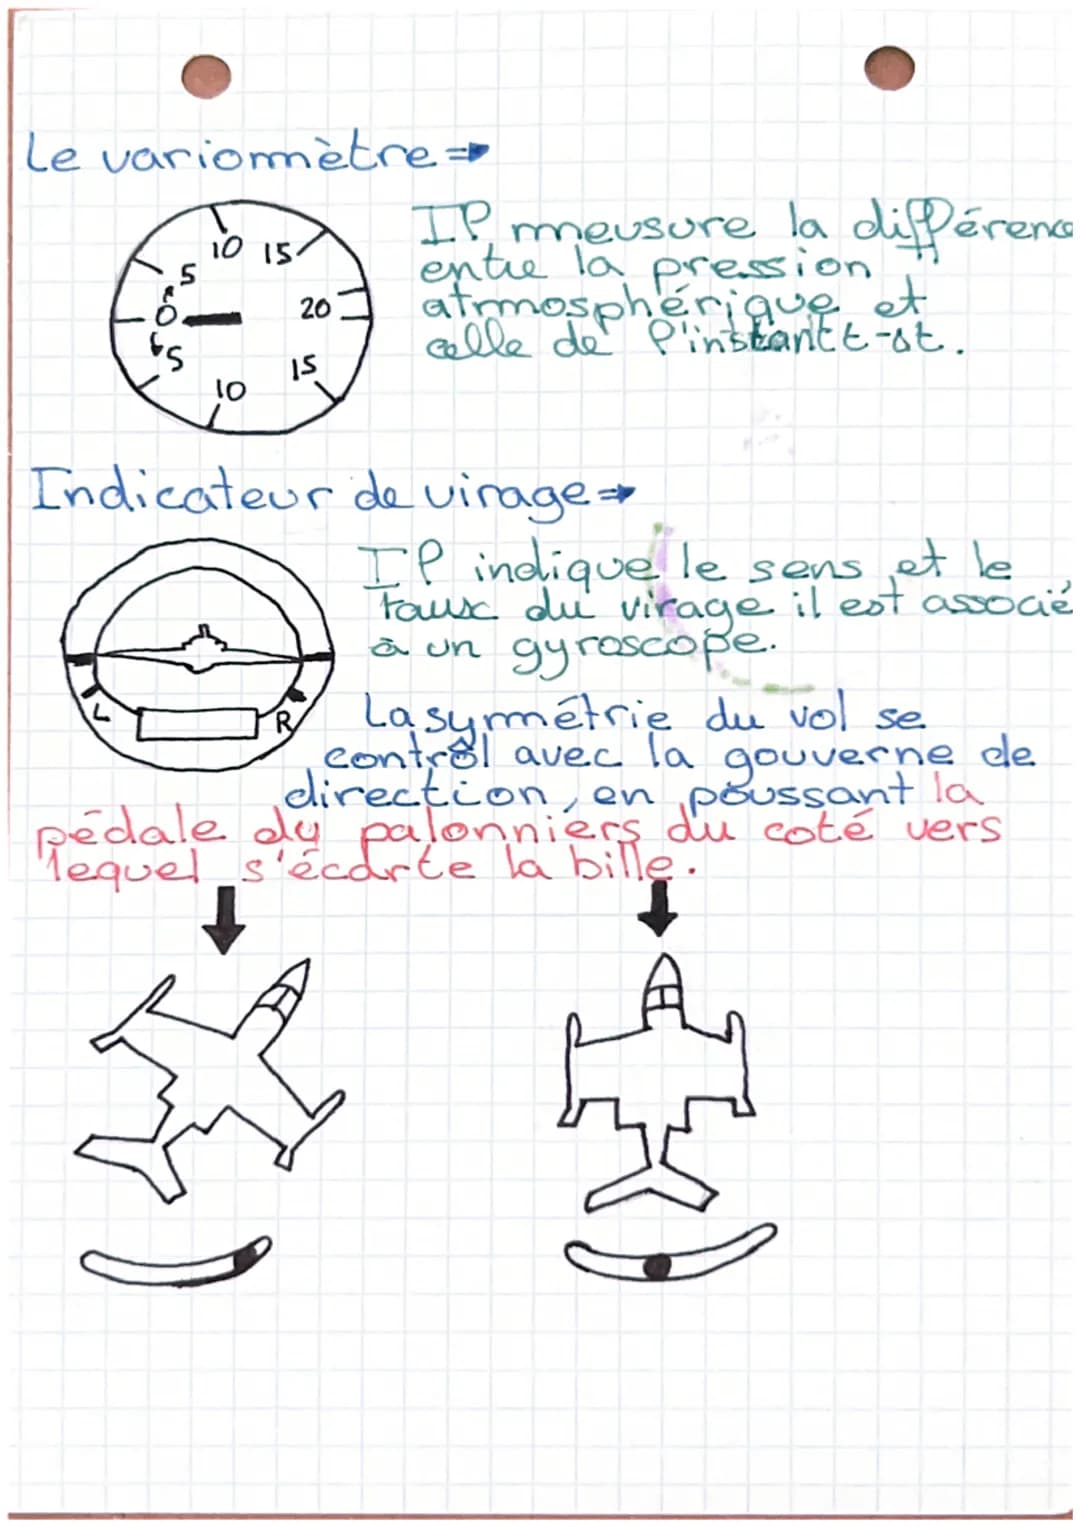 Le variommètre ⇒
10 15
5
0 20
5
15
10
Il meusure la différence
entre la pression
atmosphérique et
celle de l'instant t-δt.
Indicateur de virage ⇒
Il indique le sens et le
taux du virage il est associé
à un gyroscope.
L R
La symmétrie du vol se
contrôl avec la gouverne de
direction, en poussant la
pédale du palonniers du coté vers
lequel s'écarte la bille.